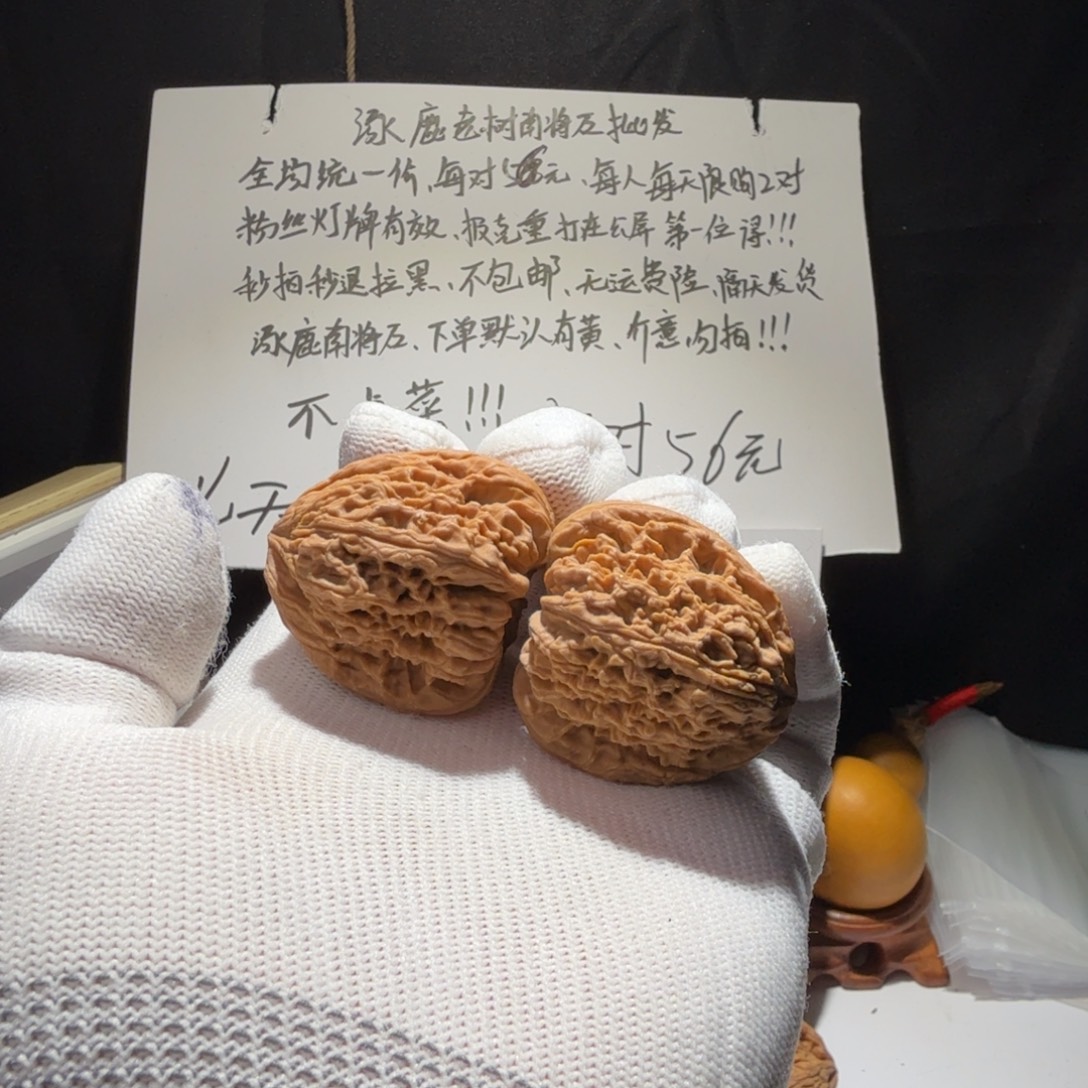 涿鹿老树南将石批发
全场统一价、每对56元、每人每天限购2对
粉丝灯牌有效、报克重打在公屏第一位得!!!
秒拍秒退拉黑、不包邮、无运费险、隔天发货
涿鹿南将石、下单默认有黄、介意勿拍!!!
不点菜!!!
对56元